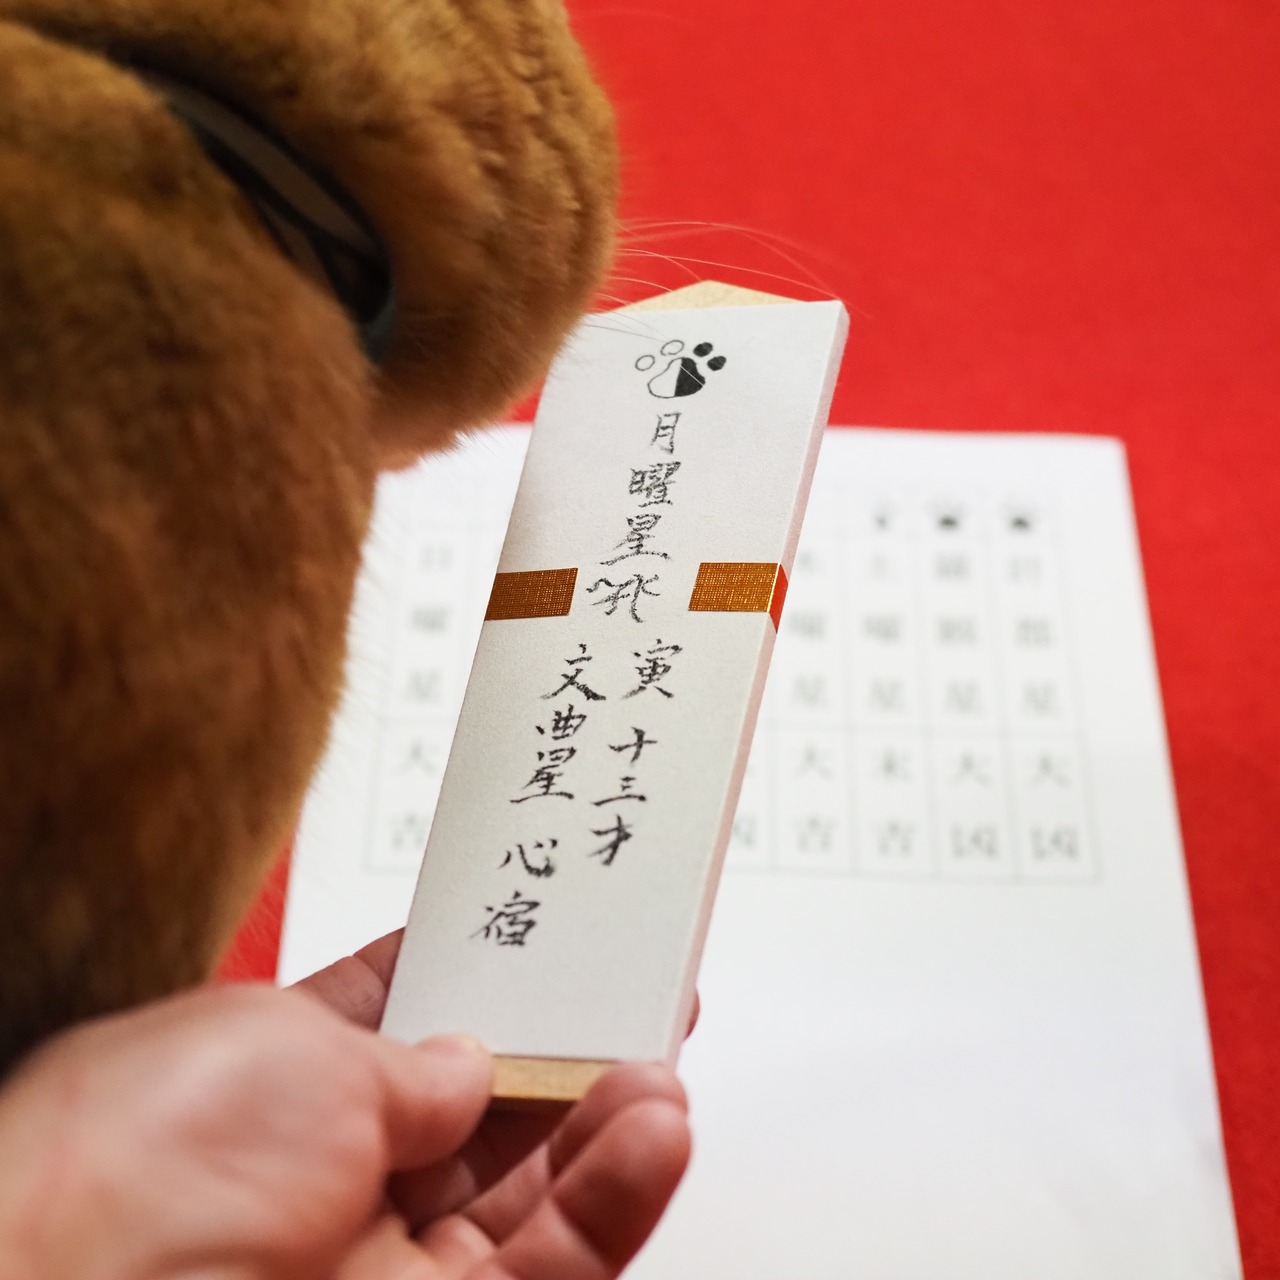 月曜星
寅 十三才
文曲星 心宿
計都星 大凶
星 大凶
土曜星 末吉
木曜星 大吉
凶
日曜星 大吉